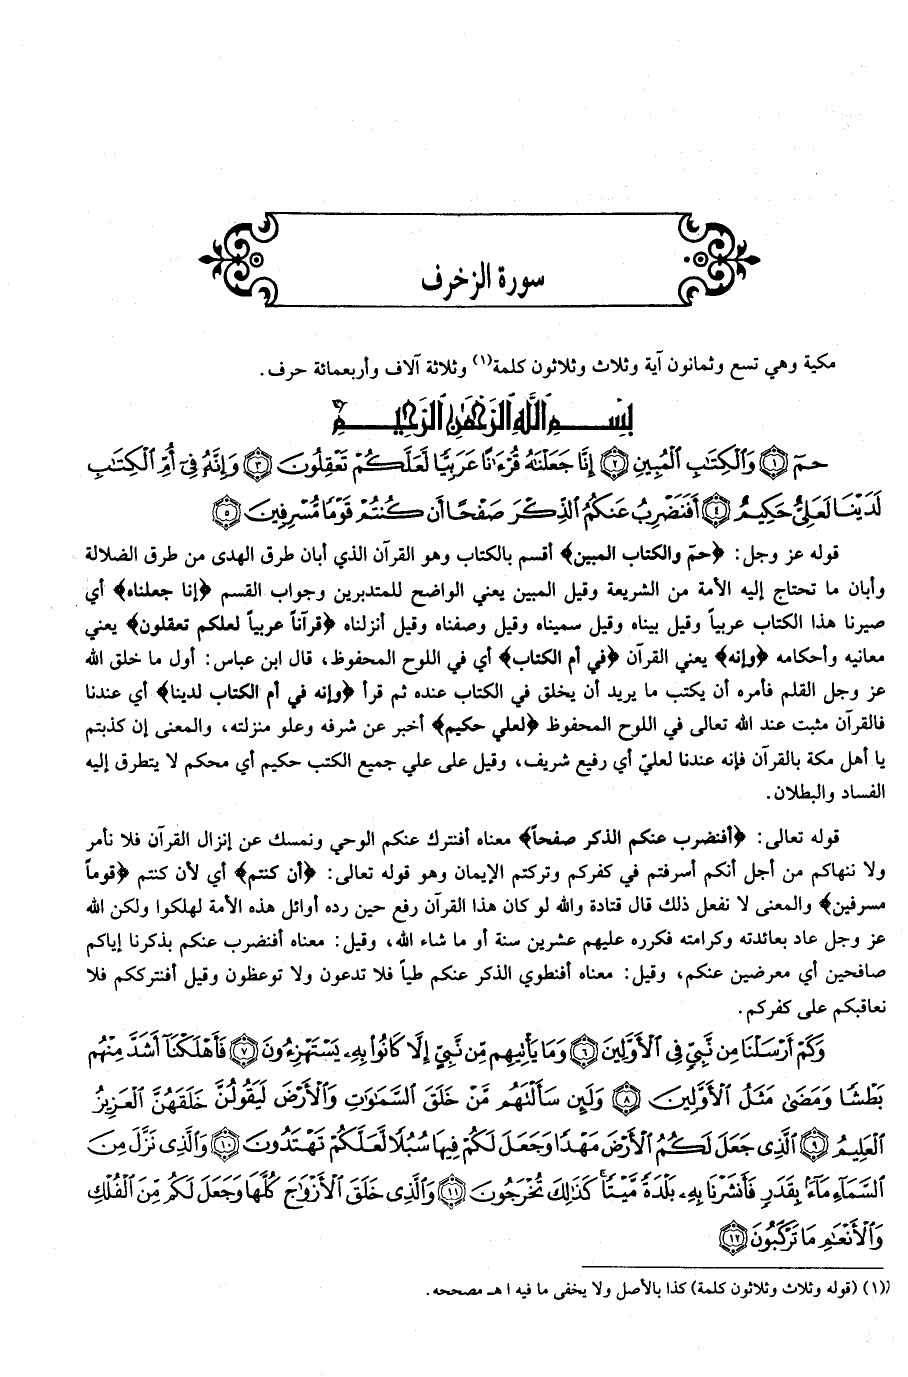 سورة الزخرف
مكية وهي تسع وثمانون آية وثلاث وثلاثون كلمة(١) وثلاثة آلاف وأربعمائة حرف.
بِسْمِ اللَّهِ الرَّحْمَٰنِ الرَّحِيمِ
حمٓ ﴿١﴾ وَالْكِتَٰبِ الْمُبِينِ ﴿٢﴾ إِنَّا جَعَلْنَٰهُ قُرْءَٰنًا عَرَبِيًّا لَّعَلَّكُمْ تَعْقِلُونَ ﴿٣﴾ وَإِنَّهُۥ فِىٓ أُمِّ الْكِتَٰبِ
لَدَيْنَا لَعَلِىٌّ حَكِيمٌ ﴿٤﴾ أَفَنَضْرِبُ عَنكُمُ الذِّكْرَ صَفْحًا أَن كُنتُمْ قَوْمًا مُّسْرِفِينَ ﴿٥﴾
قوله عز وجل: ﴿حمّ والكتاب المبين﴾ أقسم بالكتاب وهو القرآن الذي أبان طرق الهدى من طرق الضلالة
وأبان ما تحتاج إليه الأمة من الشريعة وقيل المبين يعني الواضح للمتدبرين وجواب القسم ﴿إنا جعلناه﴾ أي
صيرنا هذا الكتاب عربياً وقيل بيناه وقيل سميناه وقيل وصفناه وقيل أنزلناه ﴿قرآناً عربياً لعلكم تعقلون﴾ يعني
معانيه وأحكامه ﴿وإنه﴾ يعني القرآن ﴿في أم الكتاب﴾ أي في اللوح المحفوظ، قال ابن عباس: أول ما خلق الله
عز وجل القلم فأمره أن يكتب ما يريد أن يخلق في الكتاب عنده ثم قرأ ﴿وإنه في أم الكتاب لدينا﴾ أي عندنا
فالقرآن مثبت عند الله تعالى في اللوح المحفوظ ﴿لعلي حكيم﴾ أخبر عن شرفه وعلو منزلته، والمعنى إن كذبتم
يا أهل مكة بالقرآن فإنه عندنا لعليّ أي رفيع شريف، وقيل على علي جميع الكتب حكيم أي محكم لا يتطرق إليه
الفساد والبطلان.
قوله تعالى: ﴿أفنضرب عنكم الذكر صفحاً﴾ معناه أفنترك عنكم الوحي ونمسك عن إنزال القرآن فلا نأمر
ولا ننهاكم من أجل أنكم أسرفتم في كفركم وتركتم الإيمان وهو قوله تعالى: ﴿أن كنتم﴾ أي لأن كنتم ﴿قوماً
مسرفين﴾ والمعنى لا نفعل ذلك قال قتادة والله لو كان هذا القرآن رفع حين رده أوائل هذه الأمة لهلكوا ولكن الله
عز وجل عاد بعائدته وكرامته فكرره عليهم عشرين سنة أو ما شاء الله، وقيل: معناه أفنضرب عنكم بذكرنا إياكم
صافحين أي معرضين عنكم، وقيل: معناه أفنطوي الذكر عنكم طياً فلا تدعون ولا توعظون وقيل أفنترككم فلا
نعاقبكم على كفركم.
وَكَمْ أَرْسَلْنَا مِن نَّبِيٍّ فِى الْأَوَّلِينَ ﴿٦﴾ وَمَا يَأْتِيهِم مِّن نَّبِيٍّ إِلَّا كَانُوا بِهِۦ يَسْتَهْزِءُونَ ﴿٧﴾ فَأَهْلَكْنَآ أَشَدَّ مِنْهُم
بَطْشًا وَمَضَىٰ مَثَلُ الْأَوَّلِينَ ﴿٨﴾ وَلَئِن سَأَلْتَهُم مَّنْ خَلَقَ السَّمَٰوَٰتِ وَالْأَرْضَ لَيَقُولُنَّ خَلَقَهُنَّ الْعَزِيزُ
الْعَلِيمُ ﴿٩﴾ الَّذِى جَعَلَ لَكُمُ الْأَرْضَ مَهْدًا وَجَعَلَ لَكُمْ فِيهَا سُبُلًا لَّعَلَّكُمْ تَهْتَدُونَ ﴿١٠﴾ وَالَّذِى نَزَّلَ مِنَ
السَّمَآءِ مَآءًۢ بِقَدَرٍ فَأَنشَرْنَا بِهِۦ بَلْدَةً مَّيْتًا كَذَٰلِكَ تُخْرَجُونَ ﴿١١﴾ وَالَّذِى خَلَقَ الْأَزْوَٰجَ كُلَّهَا وَجَعَلَ لَكُم مِّنَ الْفُلْكِ
وَالْأَنْعَٰمِ مَا تَرْكَبُونَ ﴿١٢﴾
(١) (قوله وثلاث وثلاثون كلمة) كذا بالأصل ولا يخفى ما فيه ا هـ مصححه.